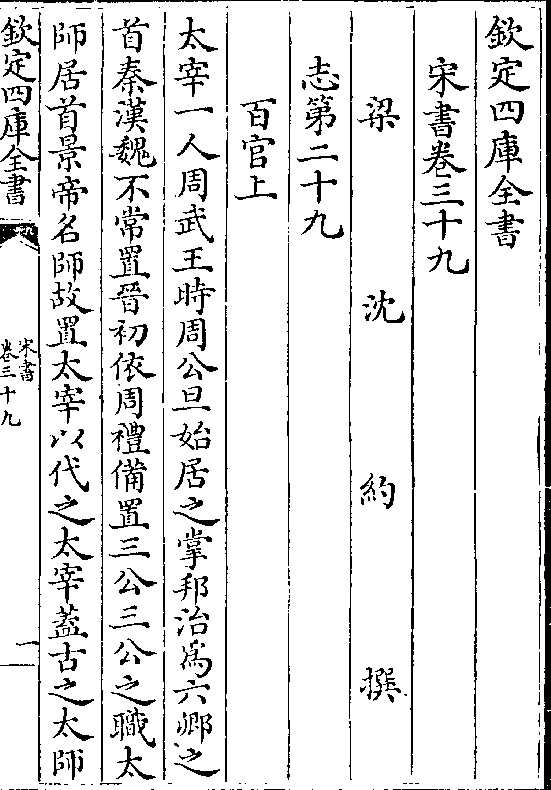 欽定四庫全書
宋書卷三十九
梁沈約撰
志第二十九
百官上
太宰一人周武王時周公旦始居之掌邦治爲六卿之
首秦漢魏不常置晉初依周禮備置三公三公之職太
師居首景帝名師故置太宰以代之太宰葢古之太師
欽定四庫全書
宋書
卷三十九
一